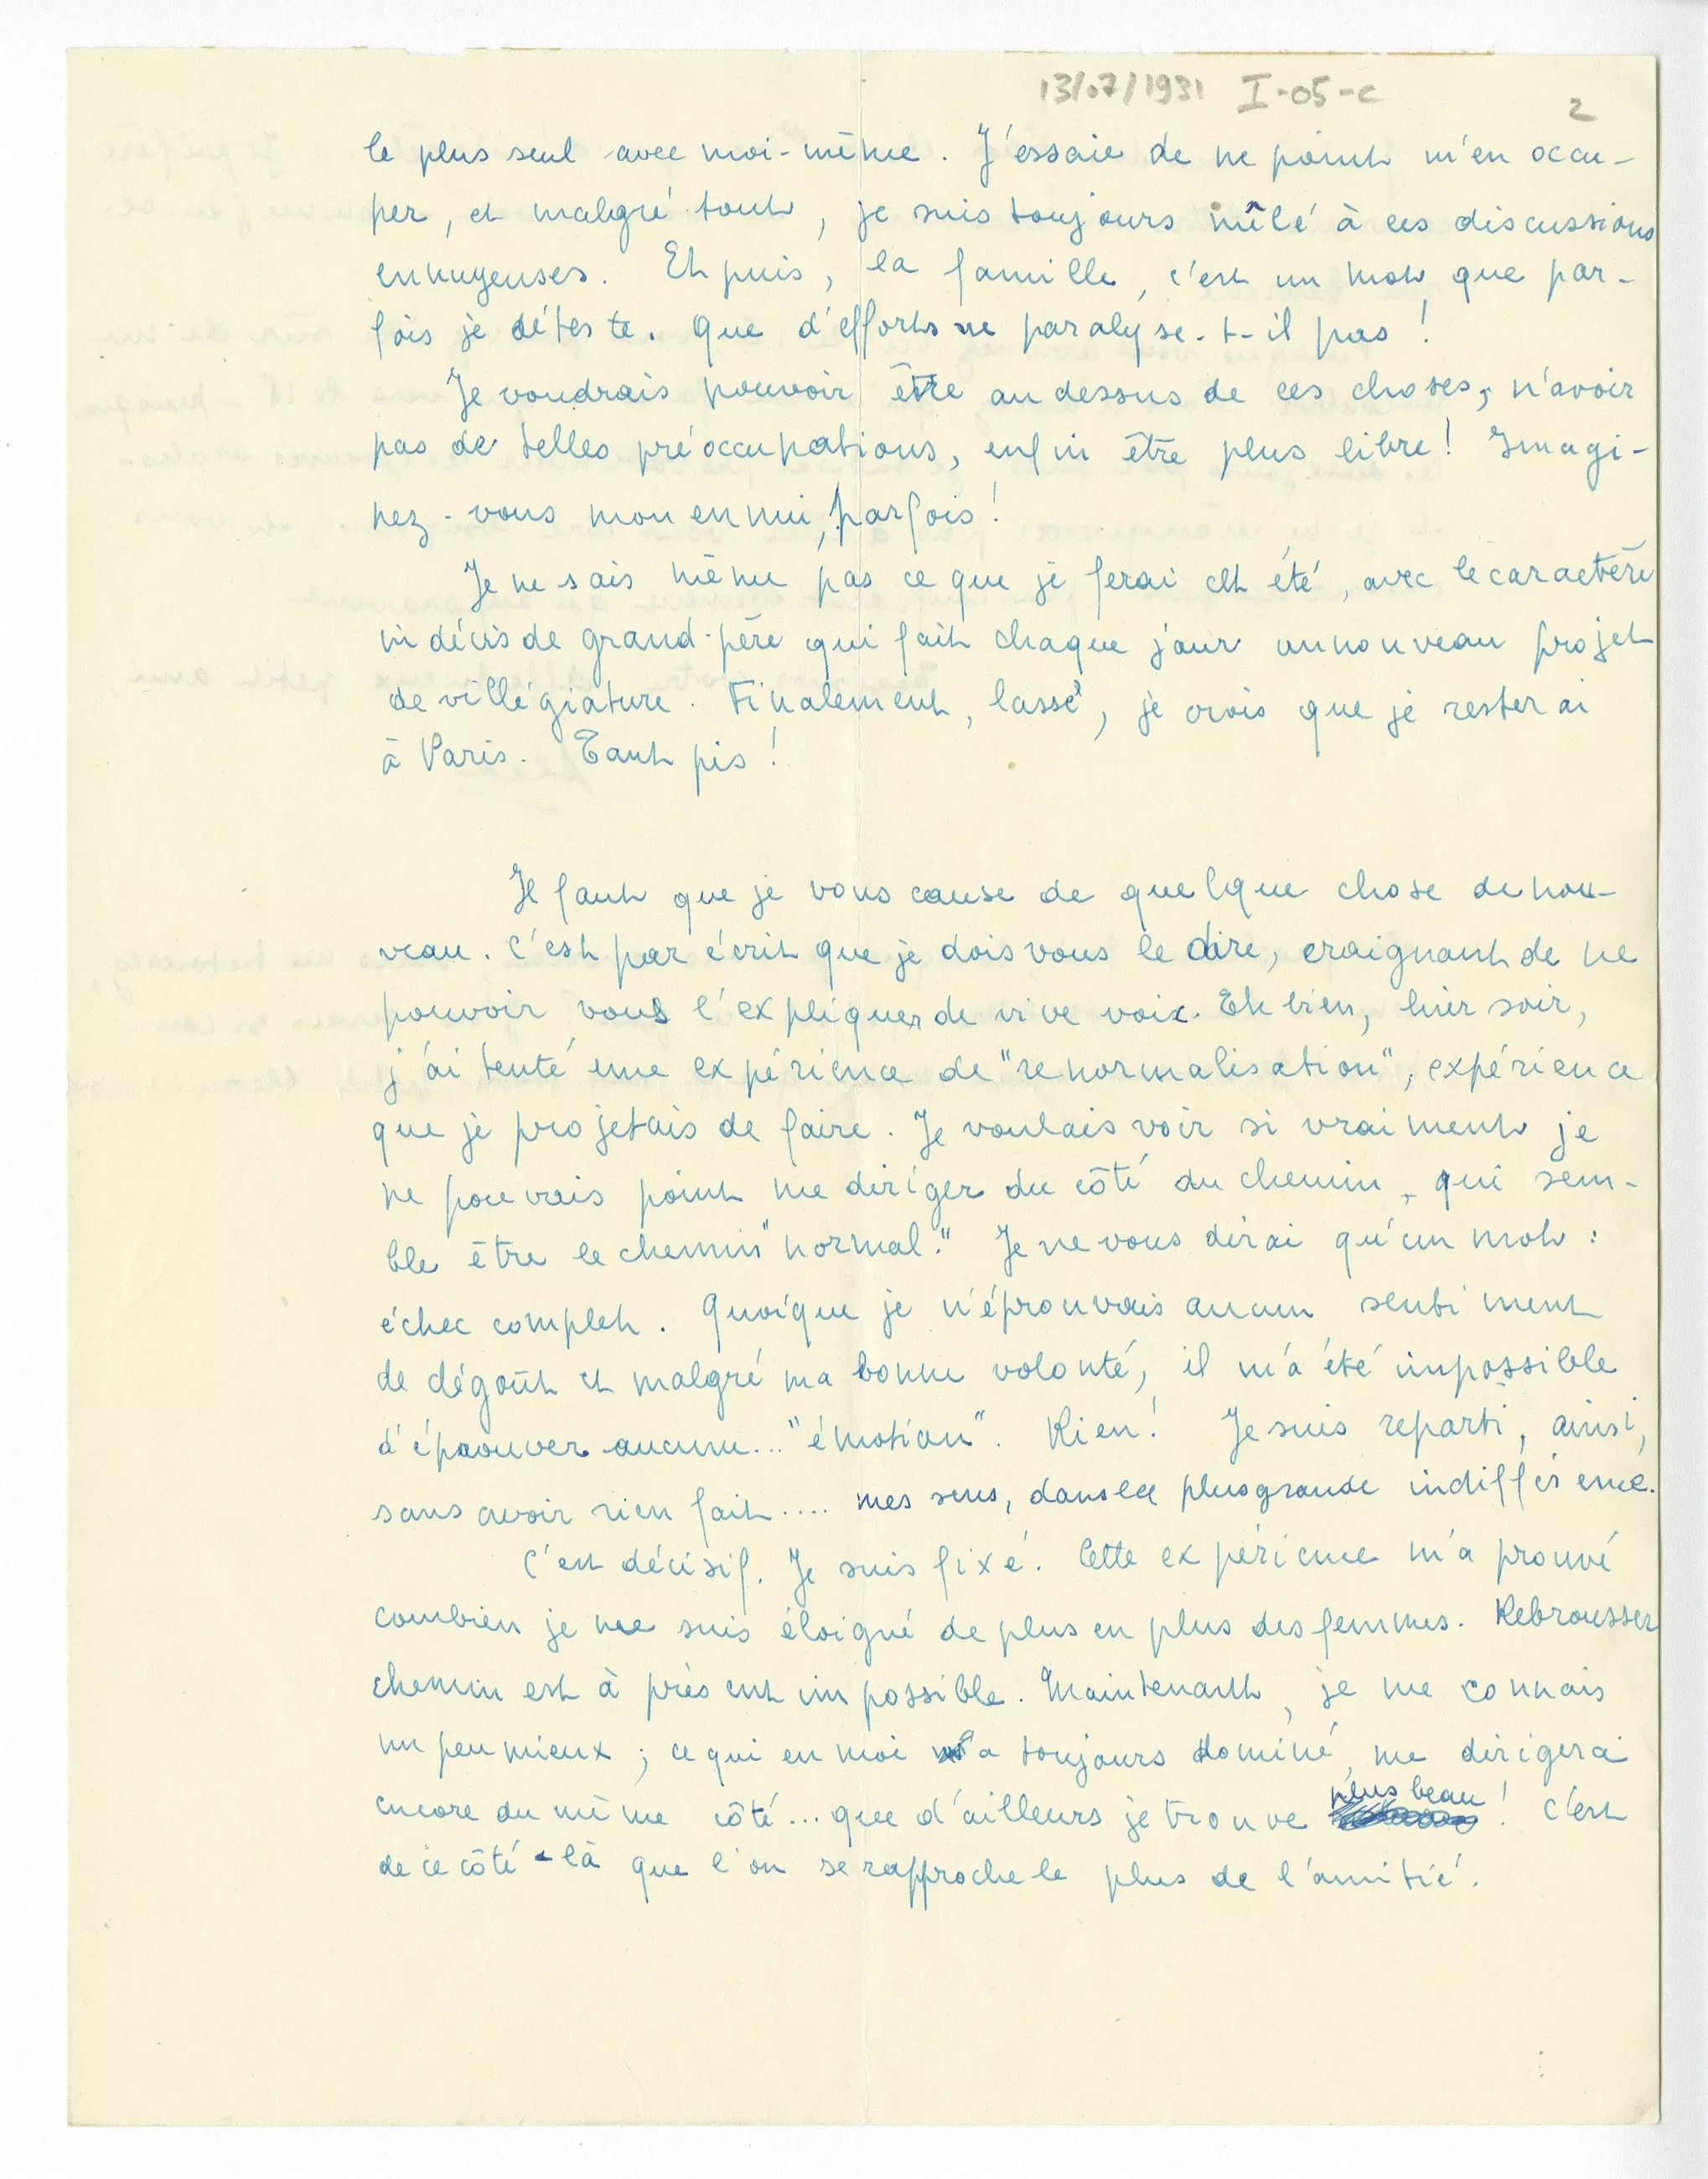 13/07/1931 I-05-c
2
le plus seul avec moi-même. J'essaie de ne point m'en occu-
per, et malgré tout, je suis toujours mêlé à ces discussions
ennuyeuses. Et puis, la famille, c'est un mot que par-
fois je déteste. Que d'efforts ne paralyse-t-il pas !
Je voudrais pouvoir être au dessus de ces choses, n'avoir
pas de telles préoccupations, enfin être plus libre ! Imagi-
nez-vous mon ennui, parfois !
Je ne sais même pas ce que je ferai cet été, avec le caractère
indécis de grand-père qui fait chaque jour un nouveau projet
de villégiature. Finalement, lassé, je crois que je resterai
à Paris. Tant pis !
Il faut que je vous cause de quelque chose de nou-
veau. C'est par écrit que je dois vous le dire, craignant de ne
pouvoir vous l'expliquer de vive voix. Eh bien, hier soir,
j'ai tenté une expérience de "renormalisation", expérience
que je projetais de faire. Je voulais voir si vraiment je
ne pouvais point me diriger du côté du chemin, qui sem-
ble être le chemin "normal." Je ne vous dirai qu'un mot :
échec complet. Quoique je n'éprouvais aucun sentiment
de dégoût et malgré ma bonne volonté, il m'a été impossible
d'éprouver aucune... "émotion". Rien ! Je suis reparti, ainsi,
sans avoir rien fait.... mes sens, dans la plus grande indifférence.
C'est décisif. Je suis fixé. Cette expérience m'a prouvé
combien je me suis éloigné de plus en plus des femmes. Rebrousser
chemin est à présent impossible. Maintenant, je me connais
un peu mieux ; ce qui en moi a toujours dominé, me dirigera
encore du même côté... que d'ailleurs je trouve plus beau ! C'est
de ce côté-là que l'on se rapproche le plus de l'amitié.